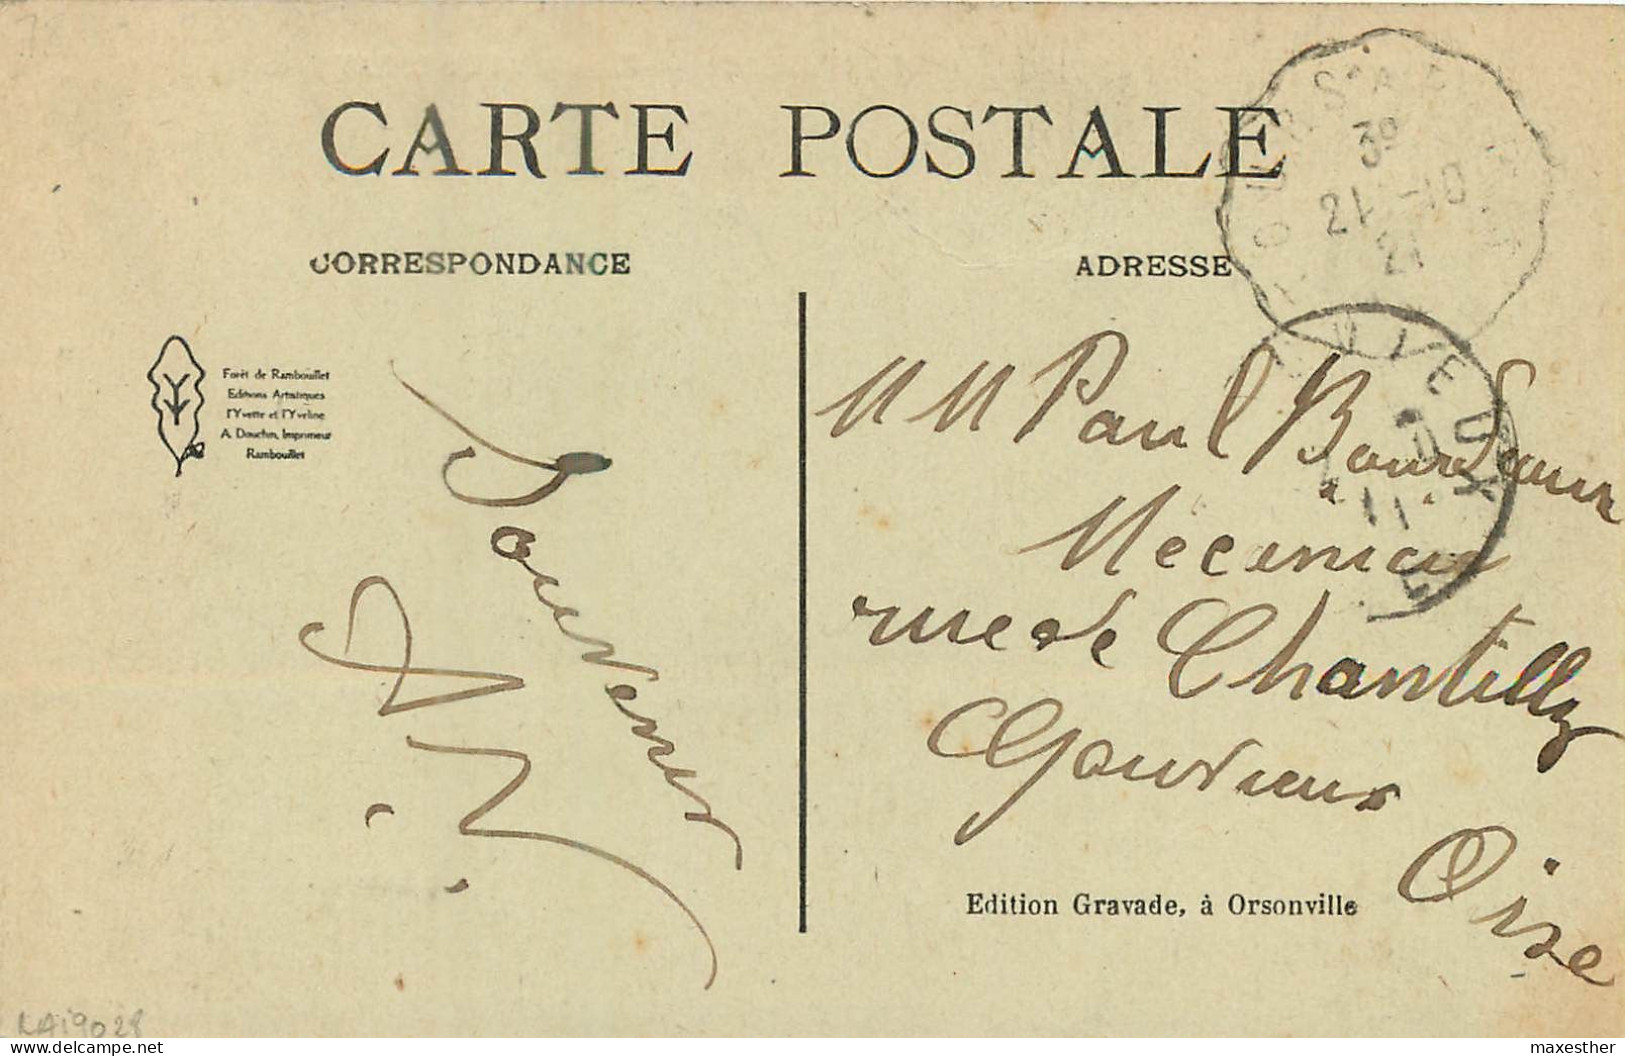 CARTE POSTALE
CORRESPONDANCE
ADRESSE
38
21 -10
21
Forêt de Rambouillet
Editions Artistiques
l'Yvette et l'Yveline
A. Douchin, Imprimeur
Rambouillet
Souvenir
GOUVIEUX
OISE
MM Paul Bourdeaux
Mécanicien
rue de Chantilly
Gouvieux
Oise
Edition Gravade, à Orsonville
RAI9028
www.delcampe.net
maxesther